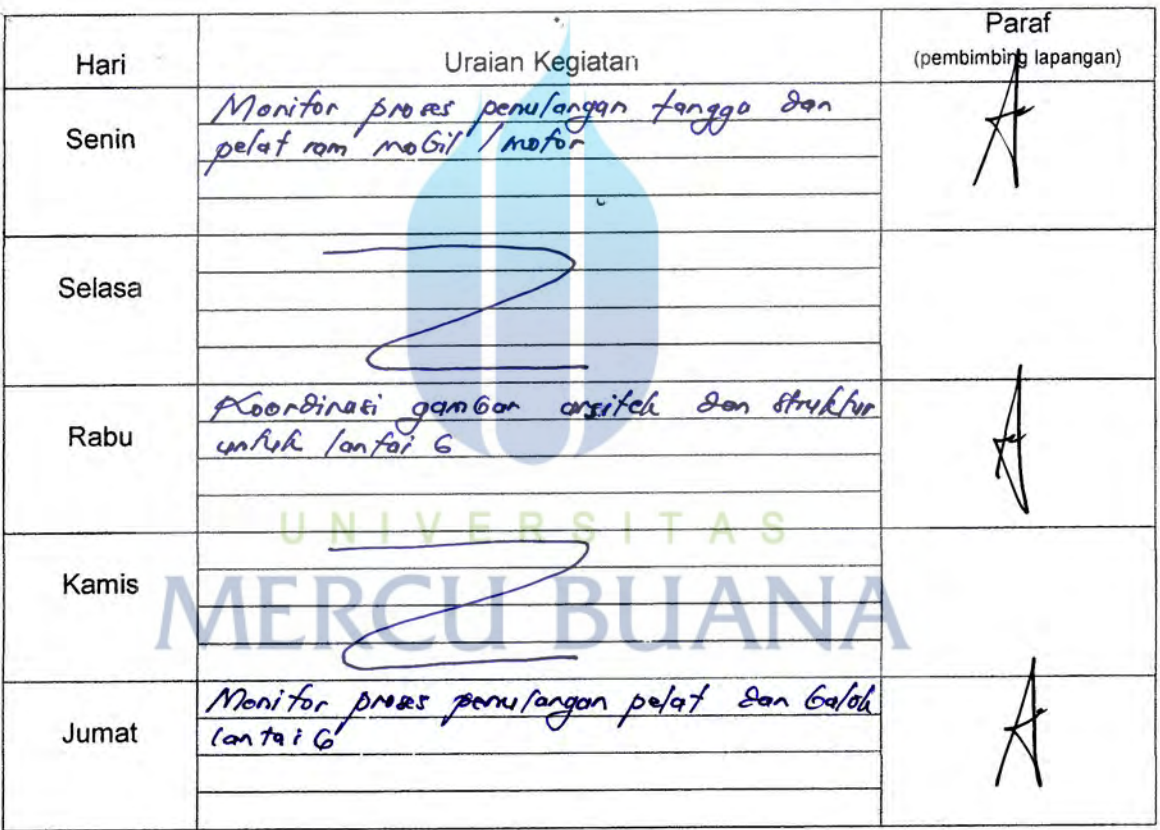 Hari Uraian Kegiatan Paraf
(pembimbing lapangan)
Senin
Monitor proses penulangan tangga dan
pelat ram mobil / motor
Selasa
Rabu
Koordinasi gambar arsitek dan struktur
untuk lantai 6
UNIVERSITAS
Kamis
MERCU BUANA
Jumat
Monitor proses penulangan pelat dan balok
lantai 6